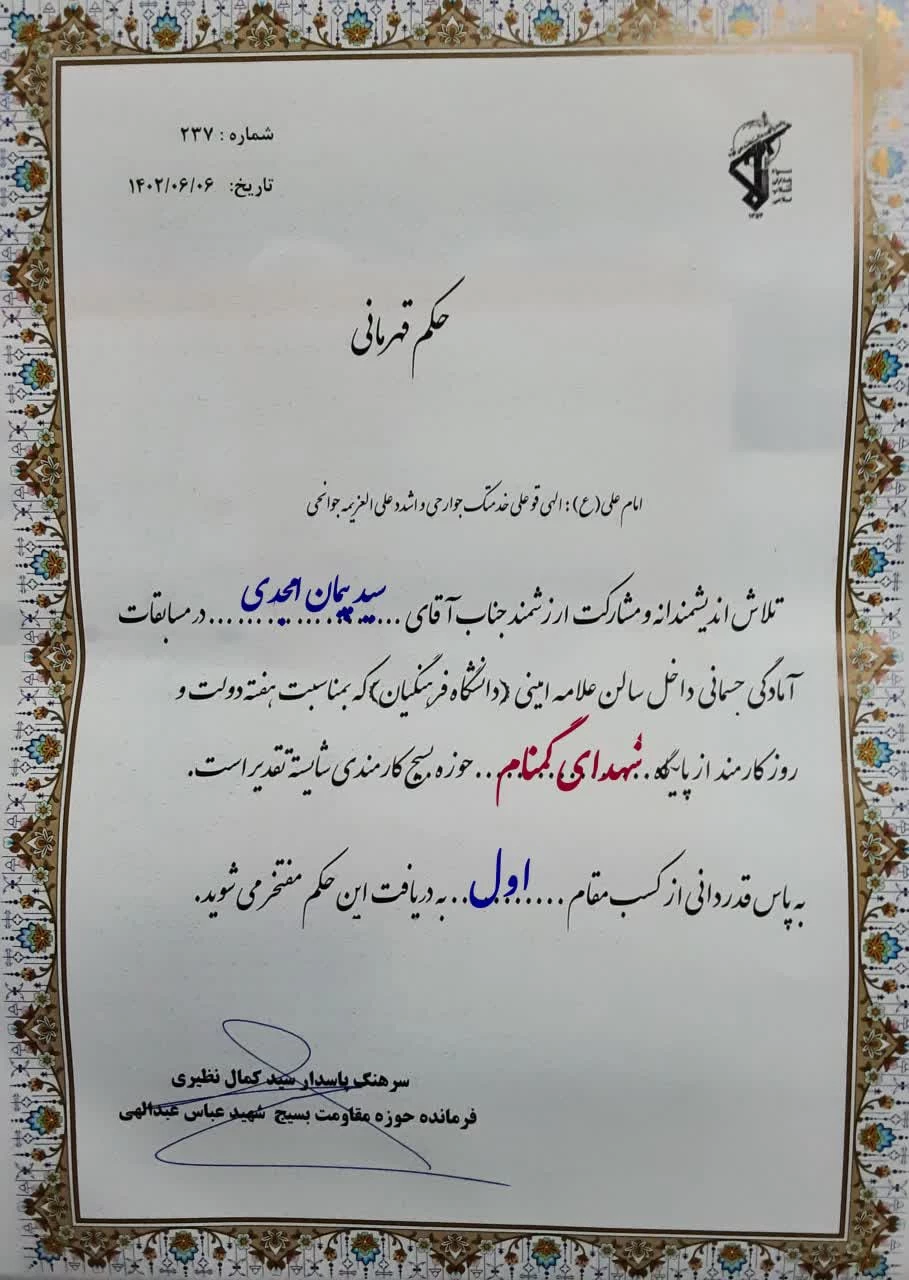 شماره : ۲۳۷
تاریخ: ۱۴۰۲/۰۶/۰۶
حکم قهرمانی
امام علی(ع): الهی قو علی خدمتک جوارحی و اشدد علی العزیمه جوانحی
تلاش اندیشمندانه و مشارکت ارزشمند جناب آقای ... سید پیمان امجدی ... در مسابقات
آمادگی جسمانی داخل سالن علامه امینی (دانشگاه فرهنگیان) که بمناسبت هفته دولت و
روز کارمند از پایگاه .. شهدای گمنام ... حوزه بسیج کارمندی شایسته تقدیر است.
به پاس قدردانی از کسب مقام ......... اول .. به دریافت این حکم مفتخر می شوید.
سرهنگ پاسدار سید کمال نظیری
فرمانده حوزه مقاومت بسیج شهید عباس عبدالهی